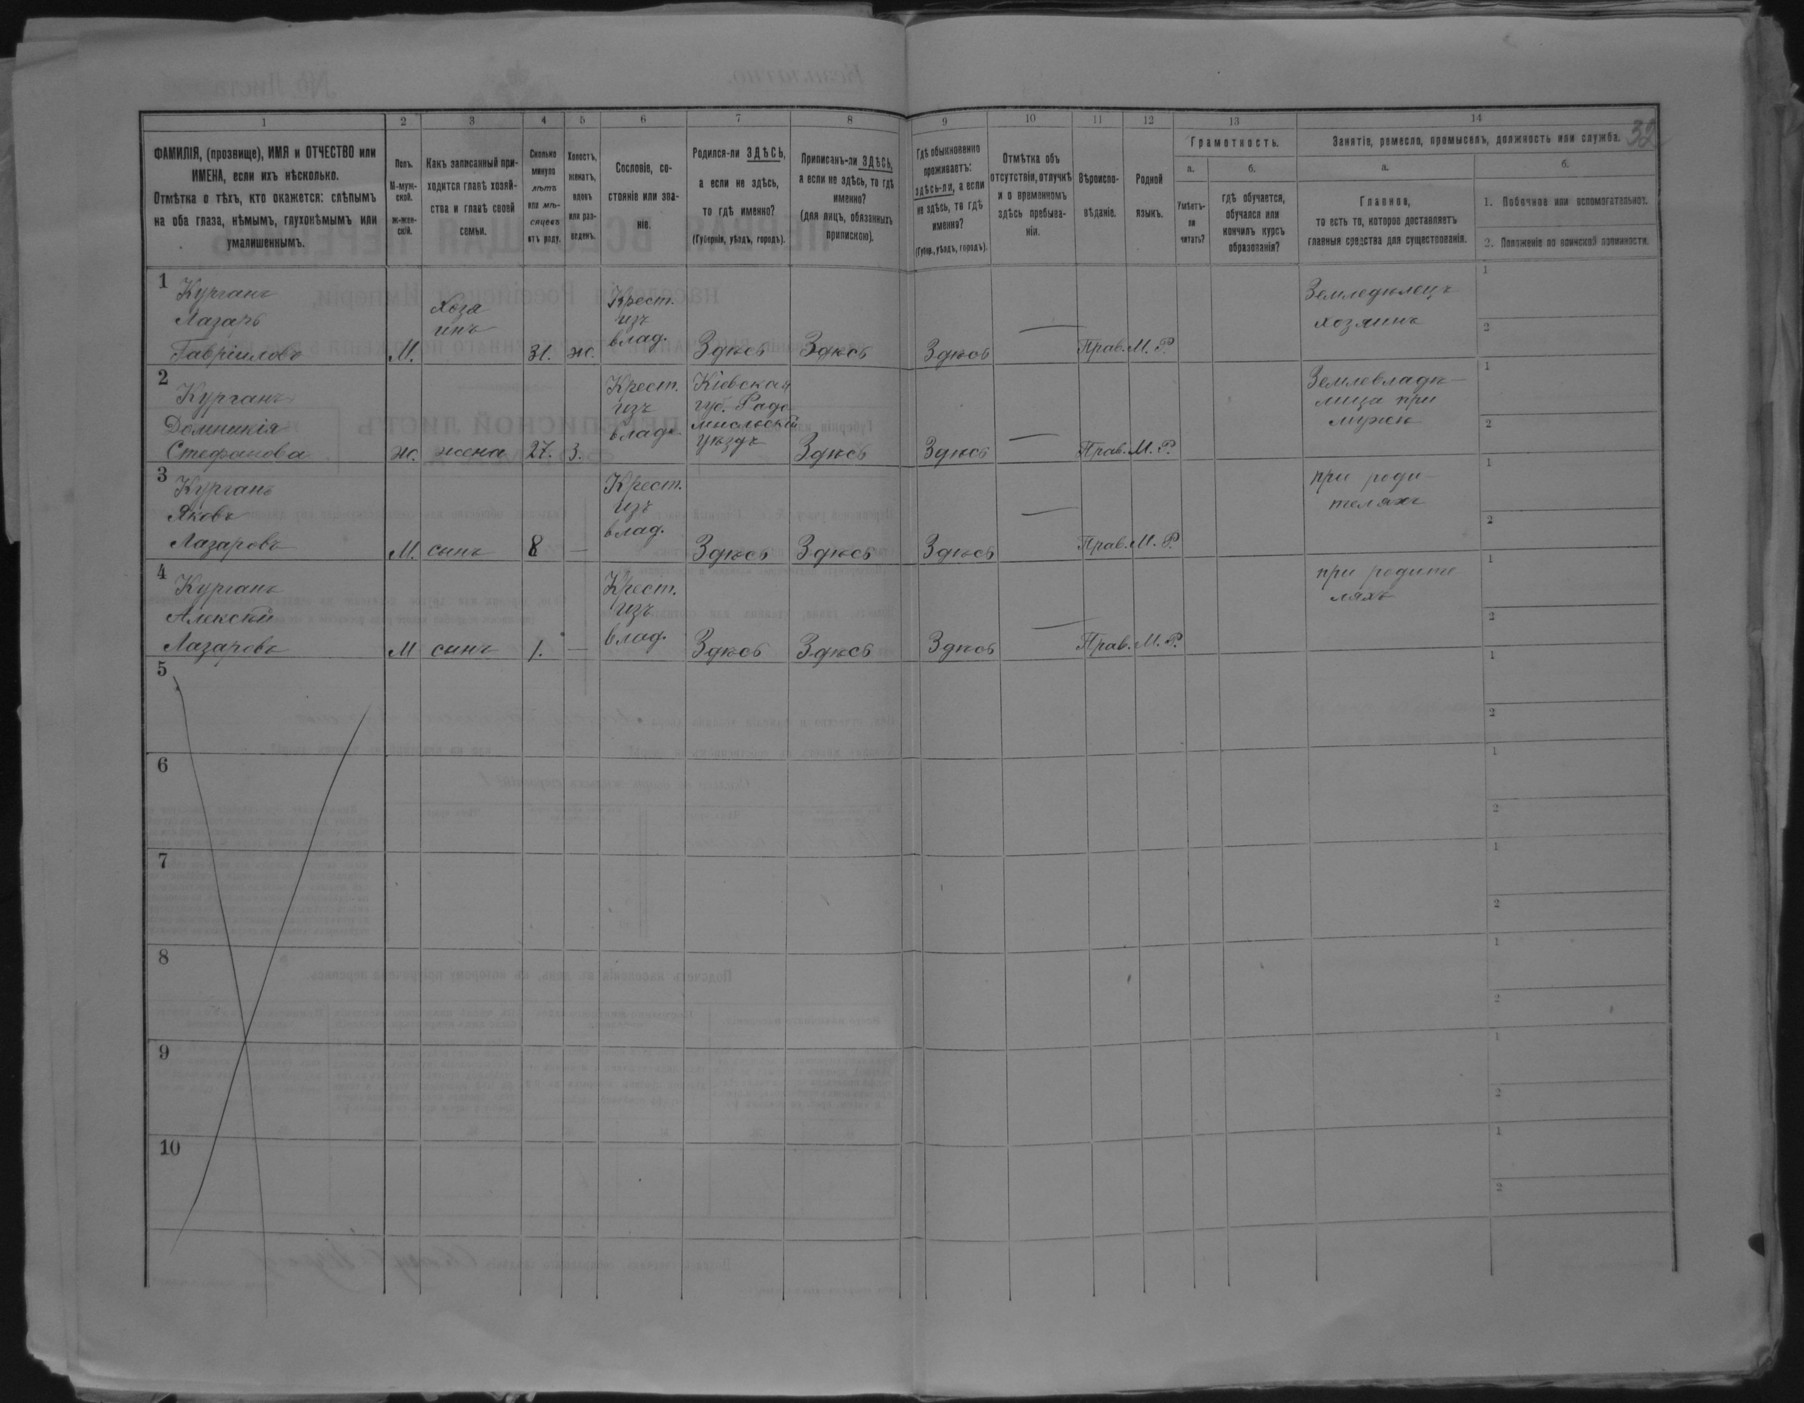 1 2 3 4 5 6 7 8 9 10 11 12 13 14
32
ФАМИЛІЯ, (прозвище), ИМЯ и ОТЧЕСТВО или
ИМЕНА, если ихъ нѣсколько.
Отмѣтка о тѣхъ, кто окажется: слѣпымъ
на оба глаза, нѣмымъ, глухонѣмымъ или
умалишеннымъ.
Полъ.
М-муж-
ской.
Ж-жен-
скій.
Какъ записанный при-
ходится главѣ хозяй-
ства и главѣ своей
семьи.
Сколько
минуло
лѣтъ
или мѣ-
сяцевъ
отъ роду.
Холостъ,
женатъ,
вдовъ
или раз-
веденъ.
Сословіе, со-
стояніе или зва-
ніе.
Родился-ли ЗДѢСЬ,
а если не здѣсь,
то гдѣ именно?
(Губернія, уѣздъ, городъ).
Приписанъ-ли ЗДѢСЬ,
а если не здѣсь, то гдѣ
именно?
(для лицъ, обязанныхъ
припискою).
Гдѣ обыкновенно
проживаетъ:
здѣсь-ли, а если
не здѣсь, то гдѣ
именно?
(Губер., уѣздъ, городъ).
Отмѣтка объ
отсутствіи, отлучкѣ
и о временномъ
здѣсь пребыва-
ніи.
Вѣроиспо-
вѣданіе.
Родной
языкъ.
Грамотность.
а.
Умѣетъ-
ли
читать?
б.
гдѣ обучается,
обучался или
кончилъ курсъ
образованія?
Занятіе, ремесло, промыселъ, должность или служба.
а.
Главное,
то есть то, которое доставляетъ
главныя средства для существованія.
б.
1. Побочное или вспомогательное.
2. Положеніе по воинской повинности.
1
Курганъ
Лазарь
Гавріиловъ
М.
Хозя
инъ
31.
ж.
Крест.
изъ
влад.
Здѣсь
Здѣсь
Здѣсь
—
Прав.
М. Р.
Земледѣлецъ
хозяинъ
1
2
2
Курганъ
Домникія
Стефанова
ж.
жена
27.
З.
Крест.
изъ
влад.
Кіевская
губ. Радо
мысльскій
уѣздъ
Здѣсь
Здѣсь
—
Прав.
М. Р.
Землевладѣ-
лица при
мужѣ
1
2
3
Курганъ
Яковъ
Лазаровъ
М.
сынъ
8
—
Крест.
изъ
влад.
Здѣсь
Здѣсь
Здѣсь
—
Прав.
М. Р.
при роди-
теляхъ
1
2
4
Курганъ
Алексѣй
Лазаровъ
М
сынъ
1.
—
Крест.
изъ
влад.
Здѣсь
Здѣсь
Здѣсь
—
Прав.
М. Р.
при родите
ляхъ
1
2
5
1
2
6
1
2
7
1
2
8
1
2
9
1
2
10
1
2